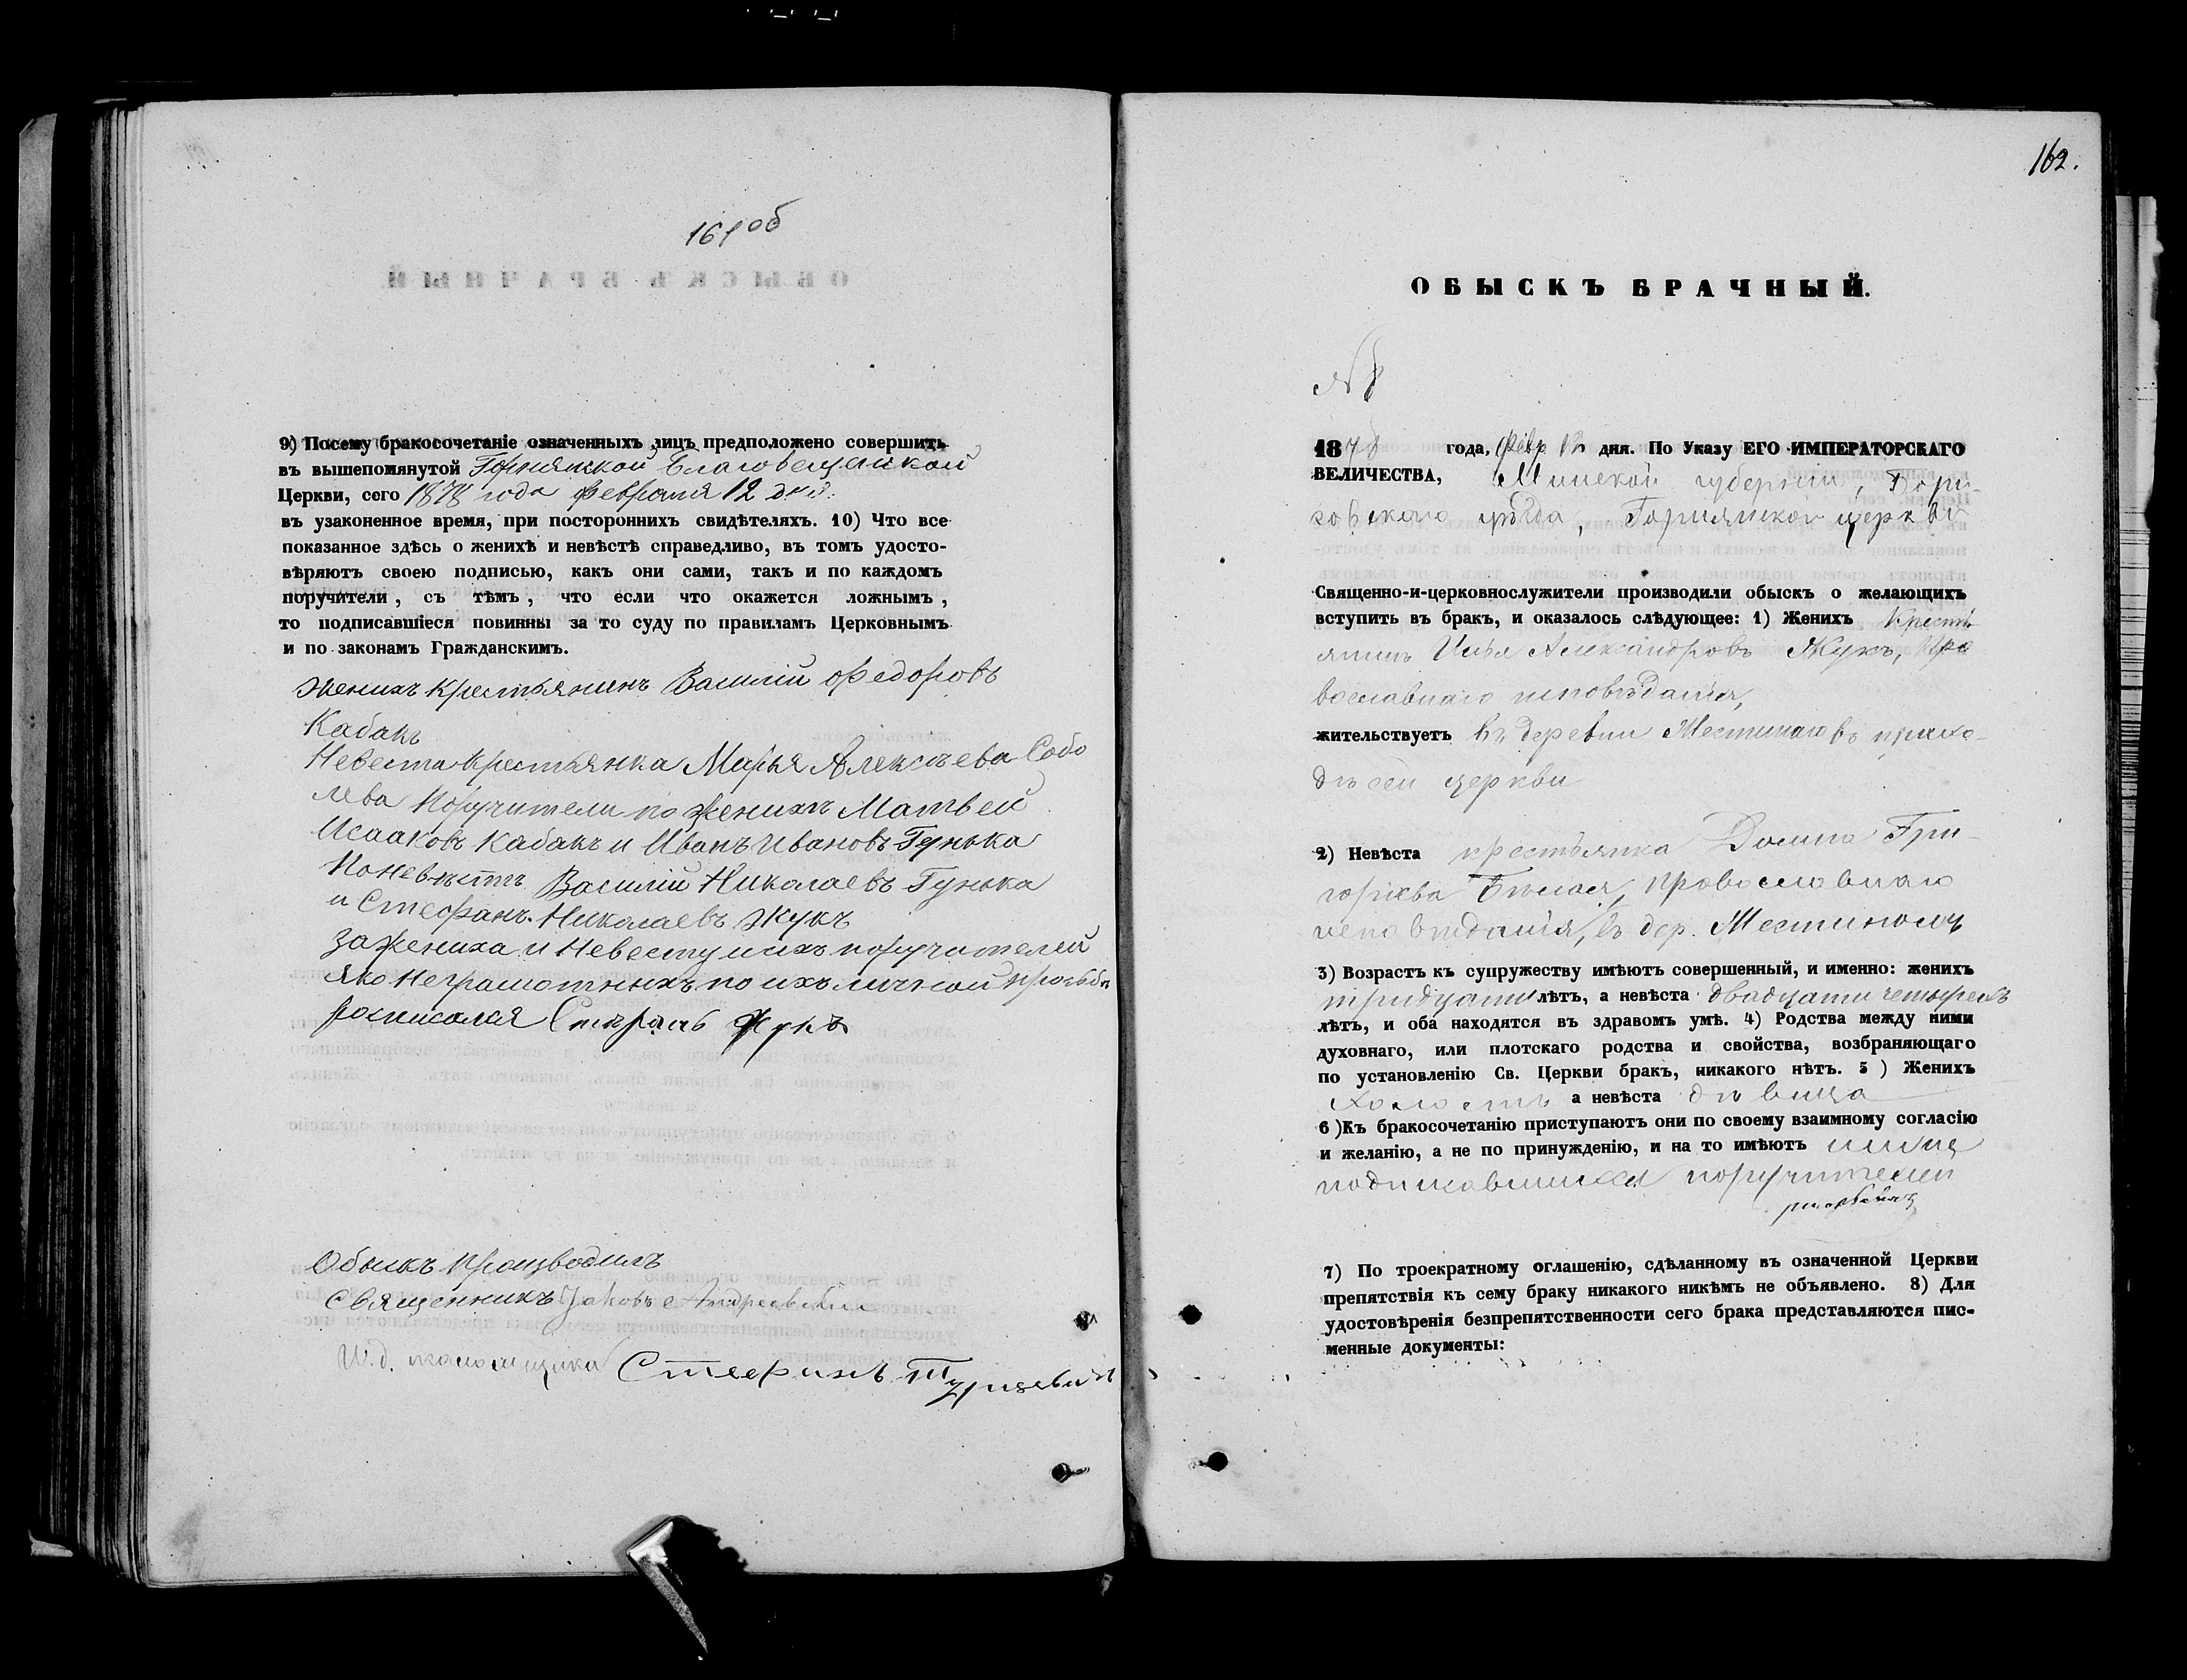 161 об
9) Посему бракосочетаніе означенныхъ лицъ предположено совершить
въ вышепомянутой Горнянской Благовещенской
Церкви, сего 1878 года февраля 12 дня.
въ узаконенное время, при постороннихъ свидѣтеляхъ. 10) Что все
показанное здѣсь о женихѣ и невѣстѣ справедливо, въ томъ удосто-
вѣряютъ своею подписью, какъ они сами, такъ и по каждомъ
поручители, съ тѣмъ, что если что окажется ложнымъ,
то подписавшіеся повинны за то суду по правиламъ Церковнымъ
и по законамъ Гражданскимъ.
Женихъ крестьянинъ Василій Федоровъ
Кабакъ
Невеста крестьянка Марья Алексѣева Собо
лева Поручители по женихѣ Матвей
Исааковъ Кабакъ и Иванъ Ивановъ Гунька
По невѣстѣ Василій Николаевъ Гунька
и Стефанъ Николаевъ Жукъ
За жениха и Невесту и ихъ поручителей
яко Неграмотныхъ по ихъ личной просьбѣ
росписался Жукъ
Обыскъ производилъ
Священникъ Іаковъ Андреевскій
И.д. Стефанъ Турцевичъ
162.
ОБЫСКЪ БРАЧНЫЙ.
№ 8
1878 года, Февр 12 дня. По Указу ЕГО ИМПЕРАТОРСКАГО
ВЕЛИЧЕСТВА, Минской губерніи, Бори-
совскаго уѣзда, Горнянской церкви
Священно-и-церковнослужители производили обыскъ о желающихъ
вступить въ бракъ, и оказалось слѣдующее: 1) Женихъ Кресть
янинъ Илья Александровъ Жукъ, Пра
вославнаго исповѣданія,
жительствуетъ въ деревни въ прихо-
дѣ сей церкви
2) Невѣста крестьянка Домна Гри-
горіева Бѣлая, провославнаго
исповѣданія, въ дер.
3) Возрастъ къ супружеству имѣютъ совершенный, и именно: женихъ
тридцати лѣтъ, а невѣста двадцати четырехъ
лѣтъ, и оба находятся въ здравомъ умѣ. 4) Родства между ними
духовнаго, или плотскаго родства и свойства, возбраняющаго
по установленію Св. Церкви бракъ, никакого нѣтъ. 5) Женихъ
холостъ а невѣста дѣвица
6)Къ бракосочетанію приступаютъ они по своему взаимному согласію
и желанію, а не по принужденію, и на то имѣютъ ниже
подписавшихся поручителей
7) По троекратному оглашенію, сдѣланному въ означенной Церкви
препятствія къ сему браку никакого никѣмъ не объявлено. 8) Для
удостовѣренія безпрепятственности сего брака представляются пис-
менные документы: